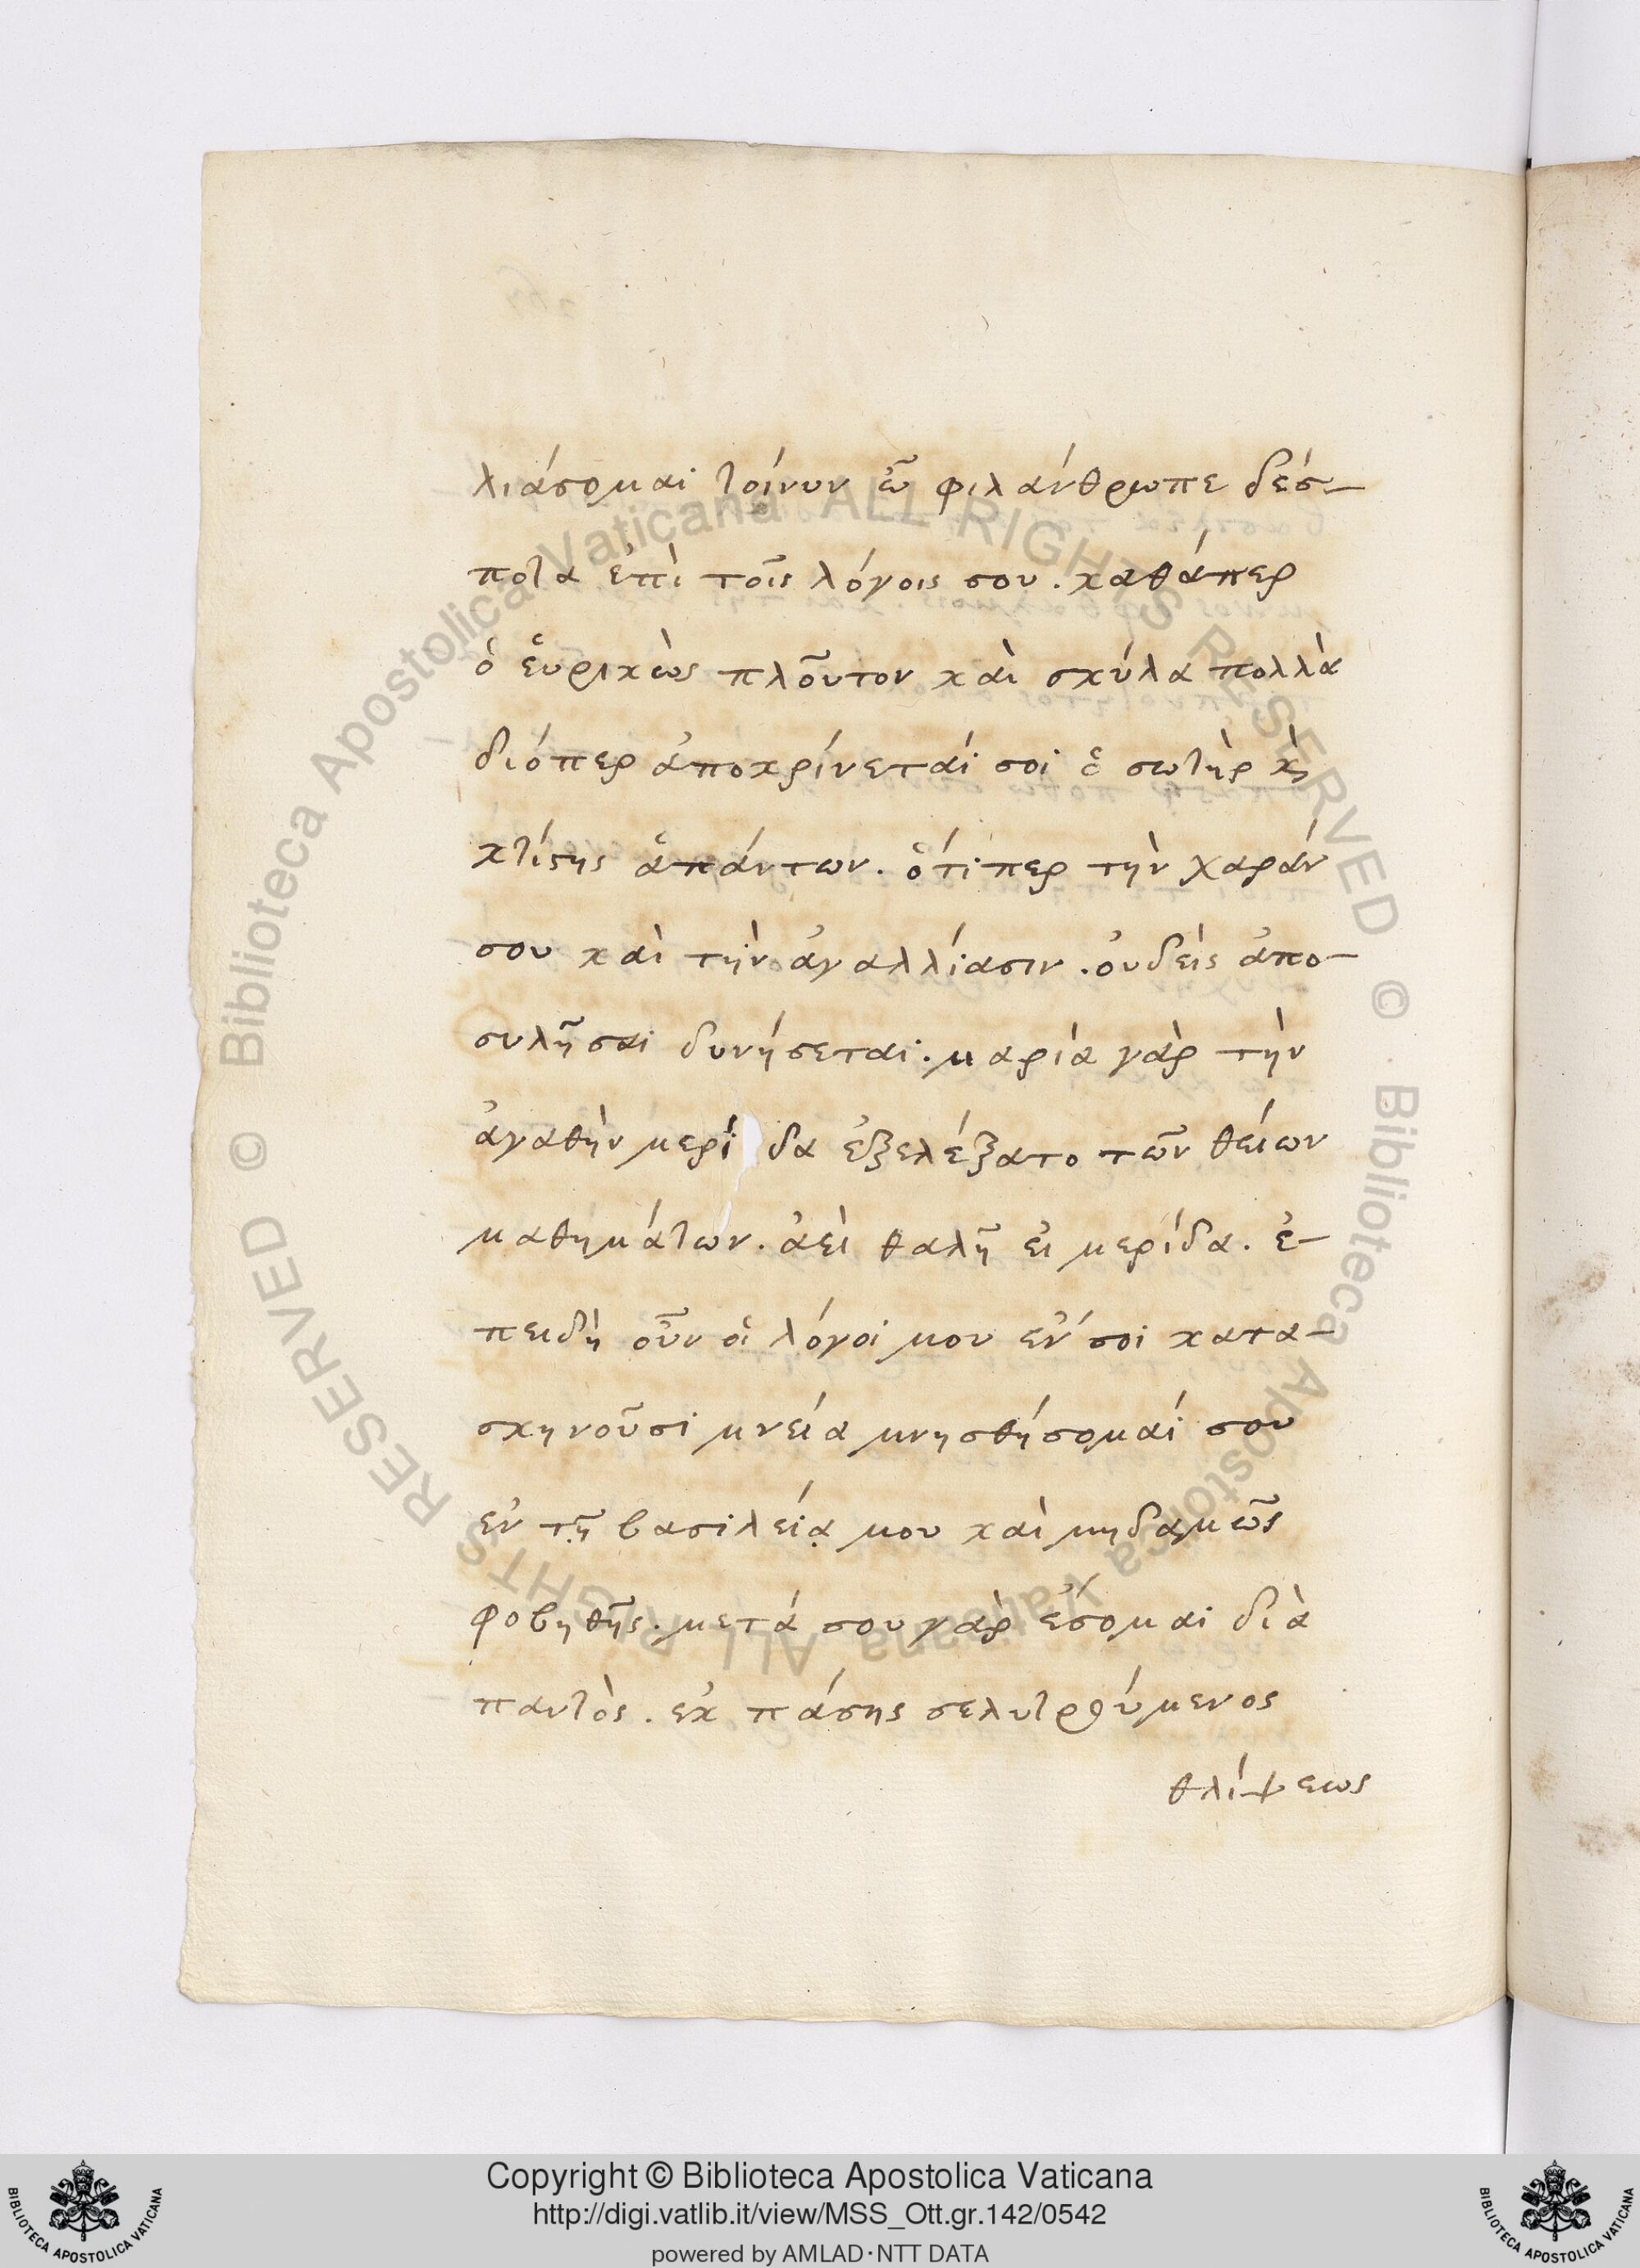 λιάσομαι τοίνυν ὦ φιλάνθρωπε δέσ-
ποτα ἐπὶ τοῖς λόγοις σου. καθάπερ
ὁ εὑρικὼς πλοῦτον καὶ σκύλα πολλὰ
διόπερ ἀποκρίνεταί σοι ὁ σωτὴρ κ̀
κτίστης ἁπάντων. ὅτιπερ τὴν χαράν
σου καὶ τὴν ἀγαλλίασιν. οὐδεὶς ἀπο-
συλῆσαι δυνήσεται. μαρία γὰρ τὴν
ἀγαθὴν μερίδα ἐξελέξατο τῶν θείων
μαθημάτων. ἀεὶ θαλῆ εἰ μερίδα. ἐ-
πειδὴ οὖν οἱ λόγοι μου ἐν σοὶ κατα-
σκηνοῦσι μνεία μνησθήσομαί σου
ἐν τῇ βασιλείᾳ μου καὶ μηδαμῶς
φοβηθῆς. μετά σου γὰρ ἔσομαι διὰ
παντὸς. ἐκ πάσης σελυτρούμενος
θλίψεως
© Biblioteca Apostolica Vaticana ALL RIGHTS RESERVED © Biblioteca Apostolica Vaticana ALL RIGHTS RESERVED
Copyright © Biblioteca Apostolica Vaticana
http://digi.vatlib.it/view/MSS_Ott.gr.142/0542
powered by AMLAD·NTT DATA
BIBLIOTECA APOSTOLICA VATICANA
BIBLIOTECA APOSTOLICA VATICANA